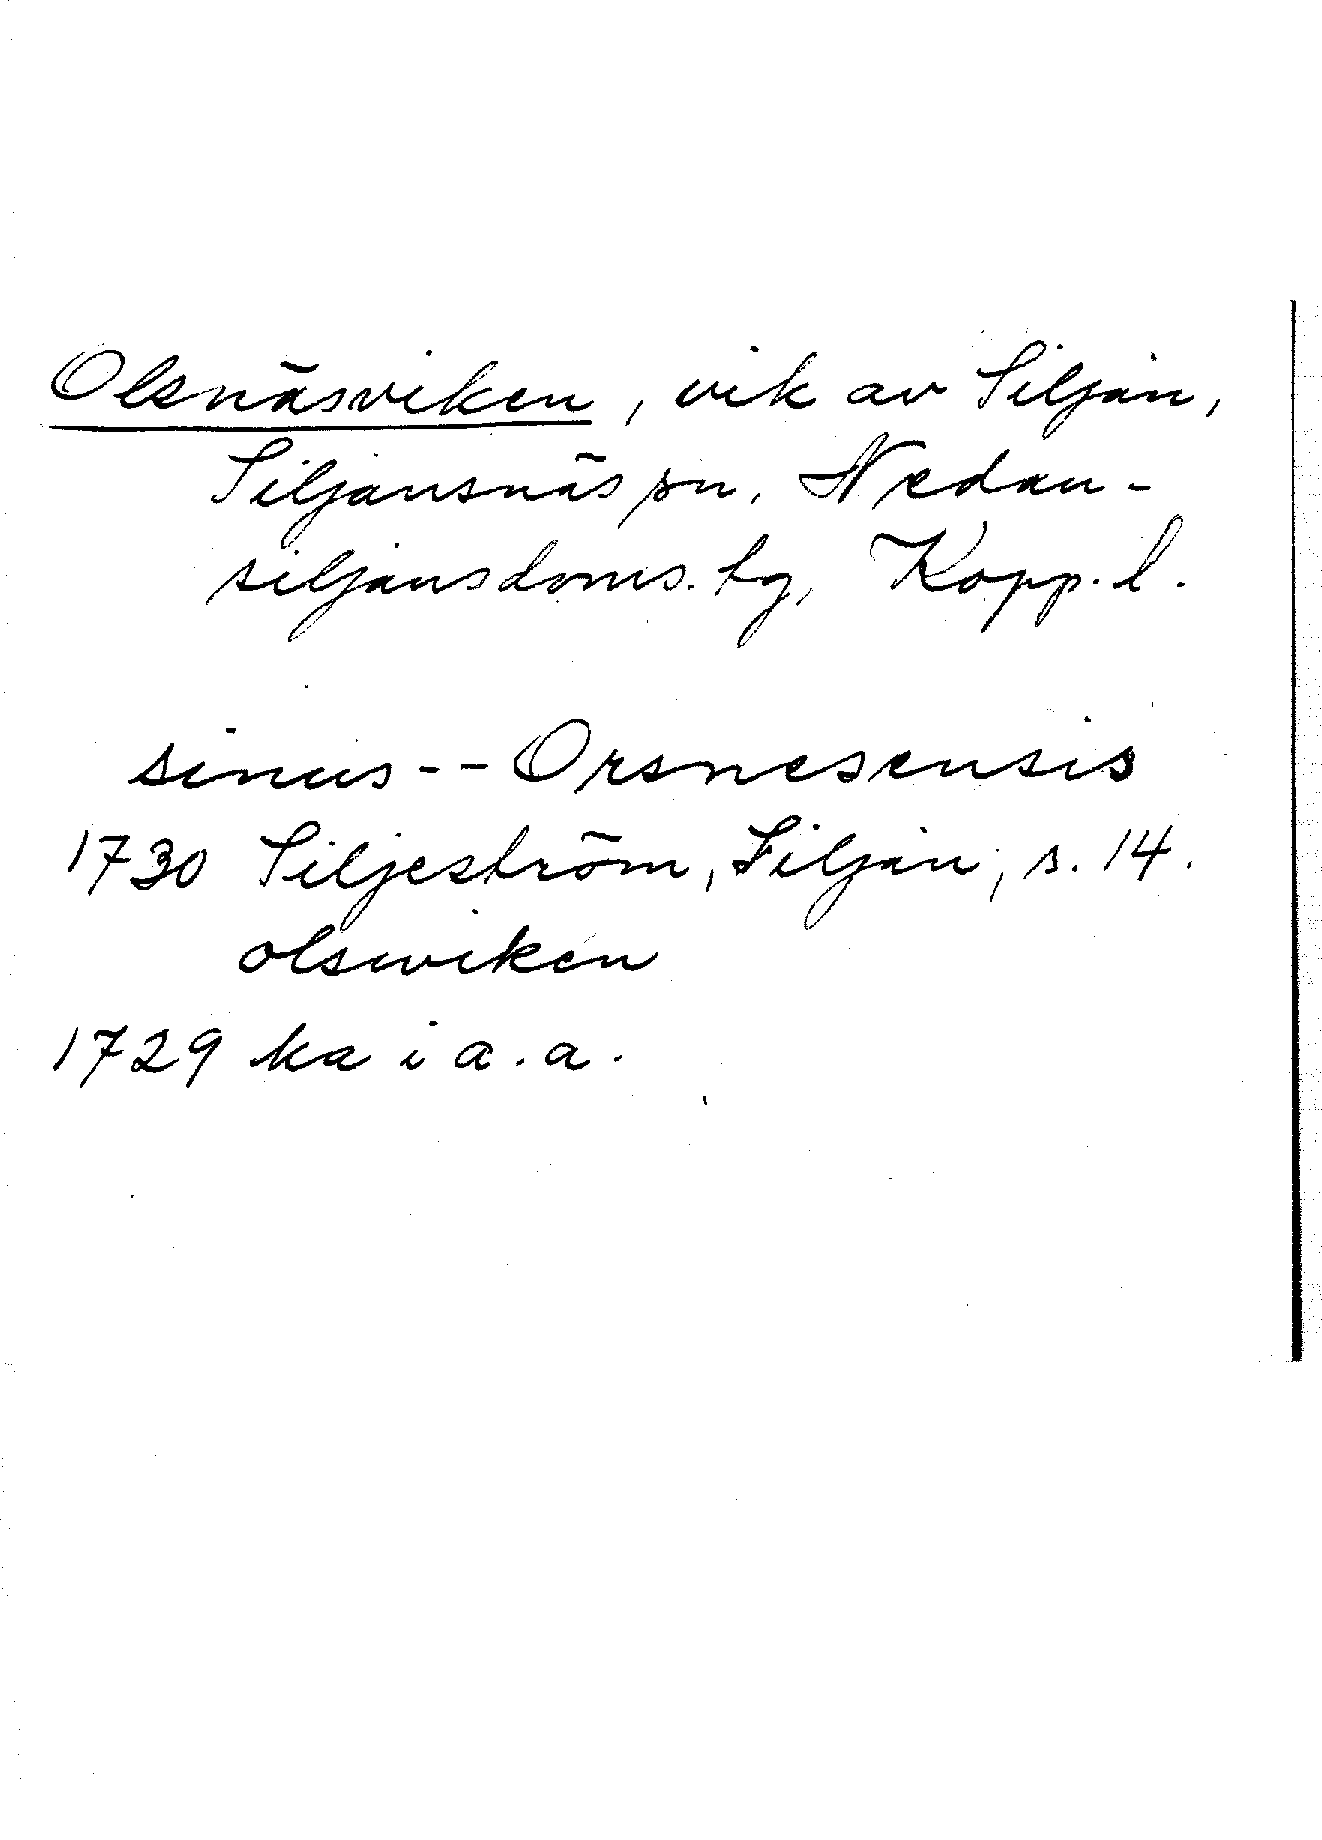 Olsnäsviken, vik av Siljan,
Siljansnäs sn, Nedan-
siljans doms. tg, Kopp. l.
sinus -- Orsnesensis
1730 Siljeström, Siljan, s. 14.
olswiken
1729 ka i a.a.